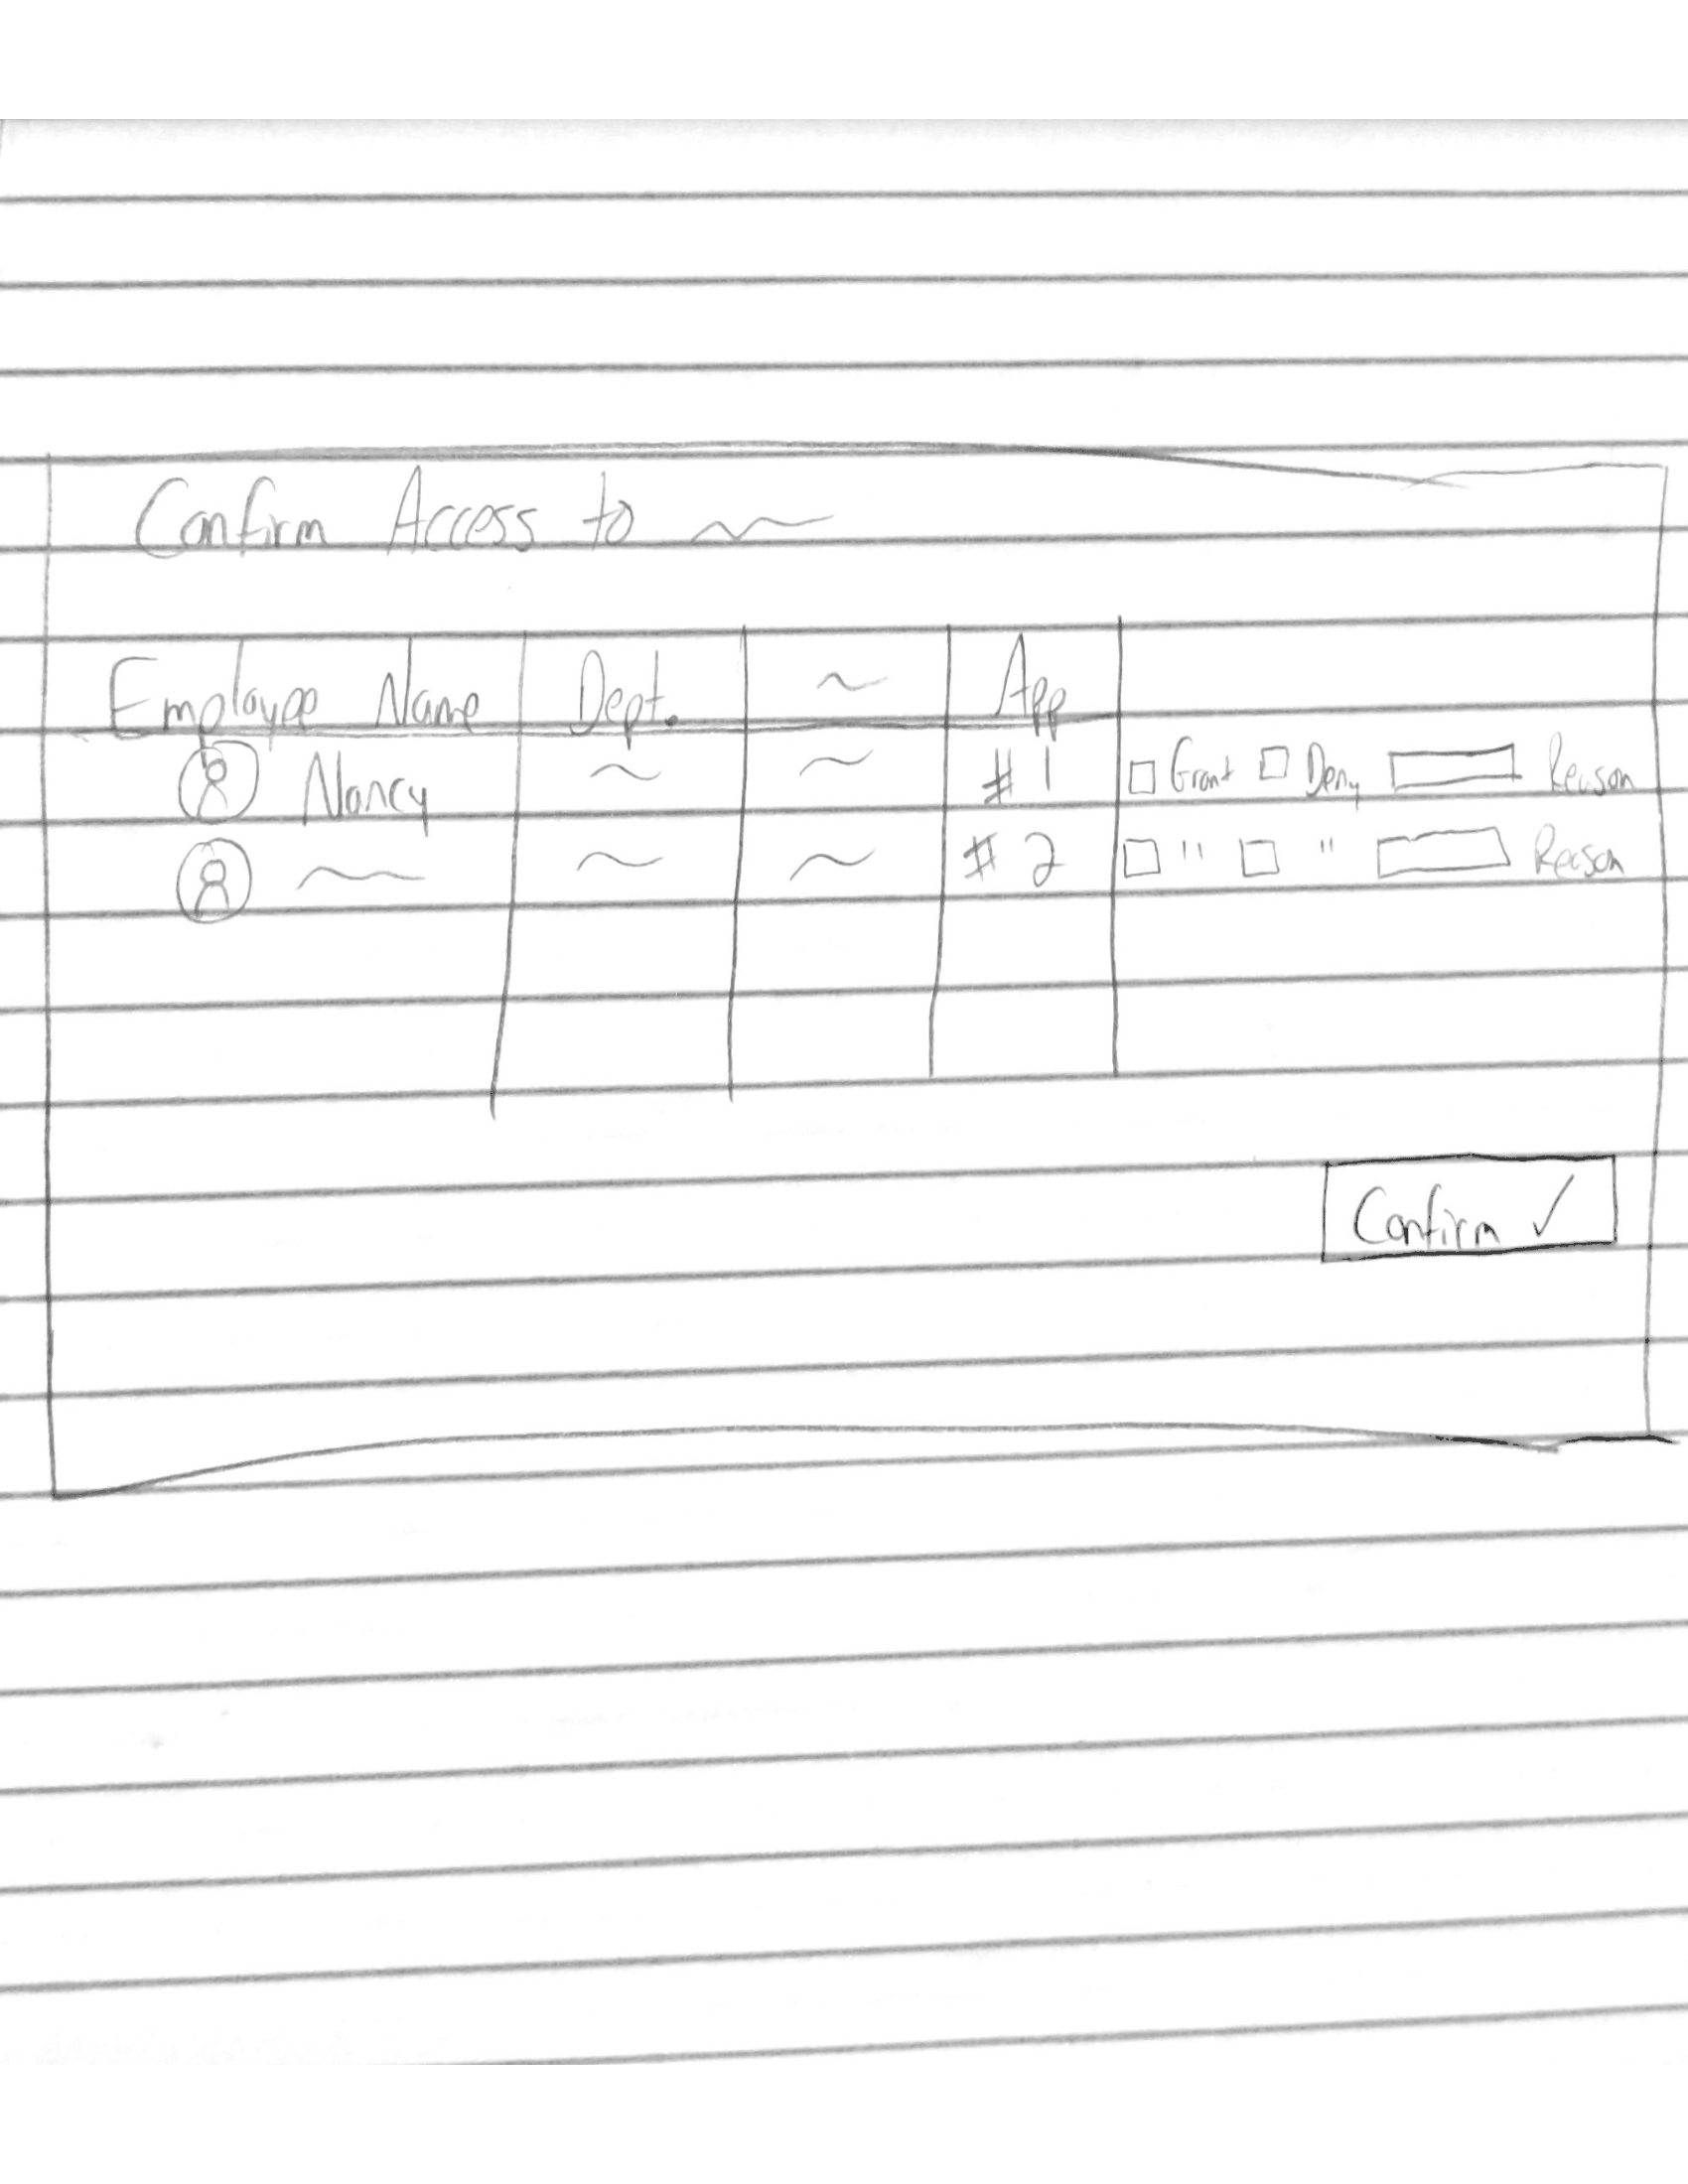 Confirm Access to ~~
Employee Name Dept. ~ App
Nancy ~ ~ #1 Grant Deny Reason
~ ~ ~ #2 " " Reason
Confirm ✓